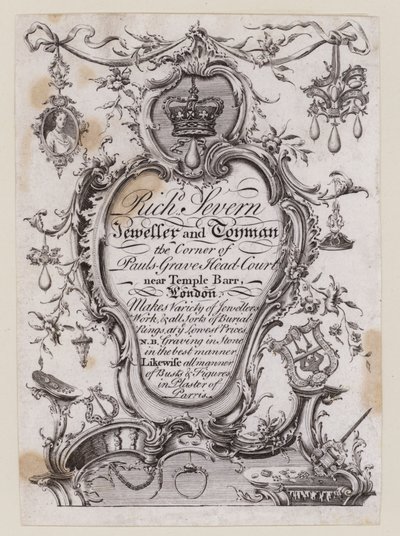 Richd. Severn
Jeweller and Toyman
the Corner of
Pauls-Grave Head-Court
near Temple Barr,
London,
Makes Variety of Jewellers
Work, & all Sorts of Burial
Rings, at ye. Lowest Prices.
N.B. Graving in Stone
in the best manner,
Likewise all manner
of Busts & Figures
in Plaster of
Parris.